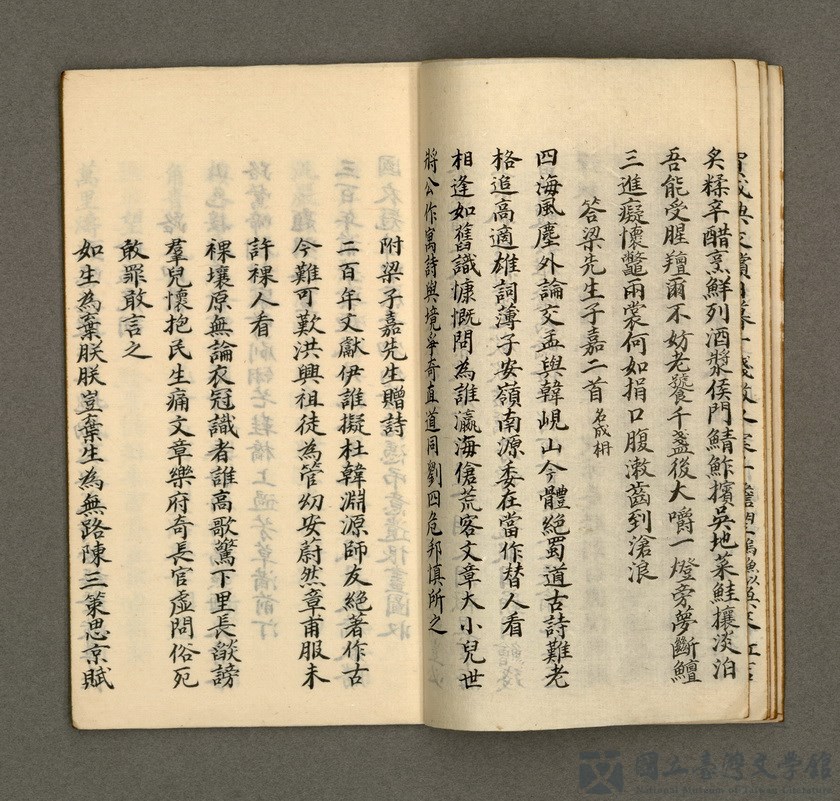 炙糅辛醋烹鮮列酒漿侯門鯖鮓擯吳地菜鮭攘淡泊
吾能受腥羶爾不妨老饕千盞後大嚼一燈旁夢斷鱣
三進癡懷鼈兩裳何如捐口腹漱齒到滄浪
答梁先生子嘉二首 名成枏
四海風塵外論交孟與韓峴山今體絕蜀道古詩難老
格追高適雄詞薄子安嶺南源委在當作替人看
相逢如舊識慷慨問為誰瀛海傖荒客文章大小兒世
將公作寓詩與境爭奇直道同劉四危邦慎所之
附梁子嘉先生贈詩
二百年文獻伊誰擬杜韓淵源師友絕著作古
今難可歎洪興祖徒為管幼安蔚然章甫服未
許裸人看
裸壤原無論衣冠識者誰高歌驚下里長歛謗
羣兒懷抱民生痛文章樂府奇長官虛問俗死
敢罪敢言之
如生為棄朕朕豈棄生為無路陳三策思京賦
國立臺灣文學館
National Museum of Taiwan Literature